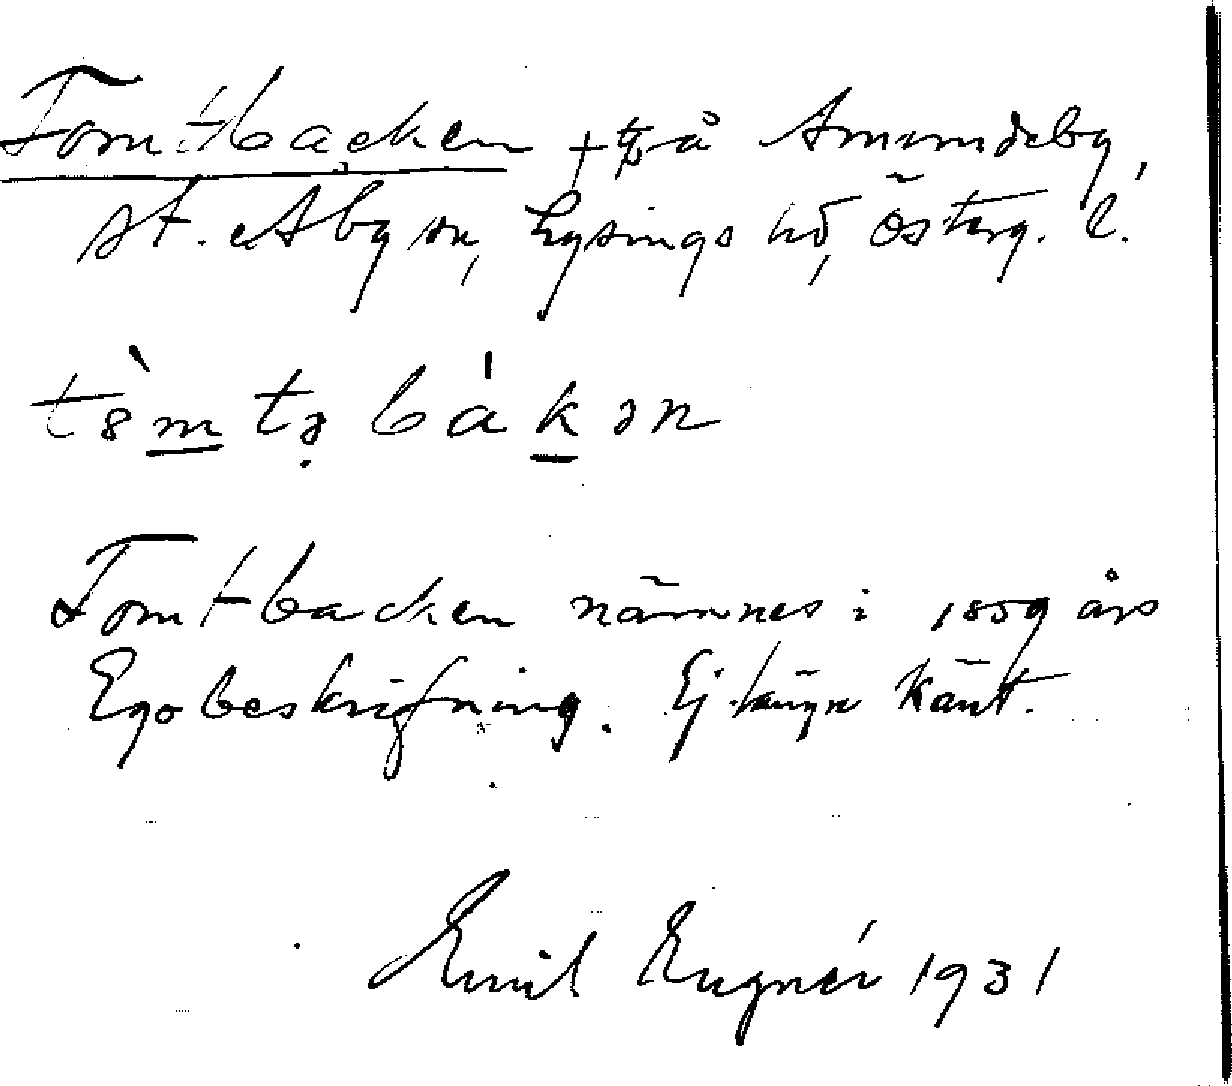 Tomtbacken + på Amundeby,
st. Åby sn, Lysings hd, Österg. l.
tòmtabákən
Tomtbacken nämnes i 1859 års
Egobeskrifning. Ej längre känt.
Emil Engnér 1931